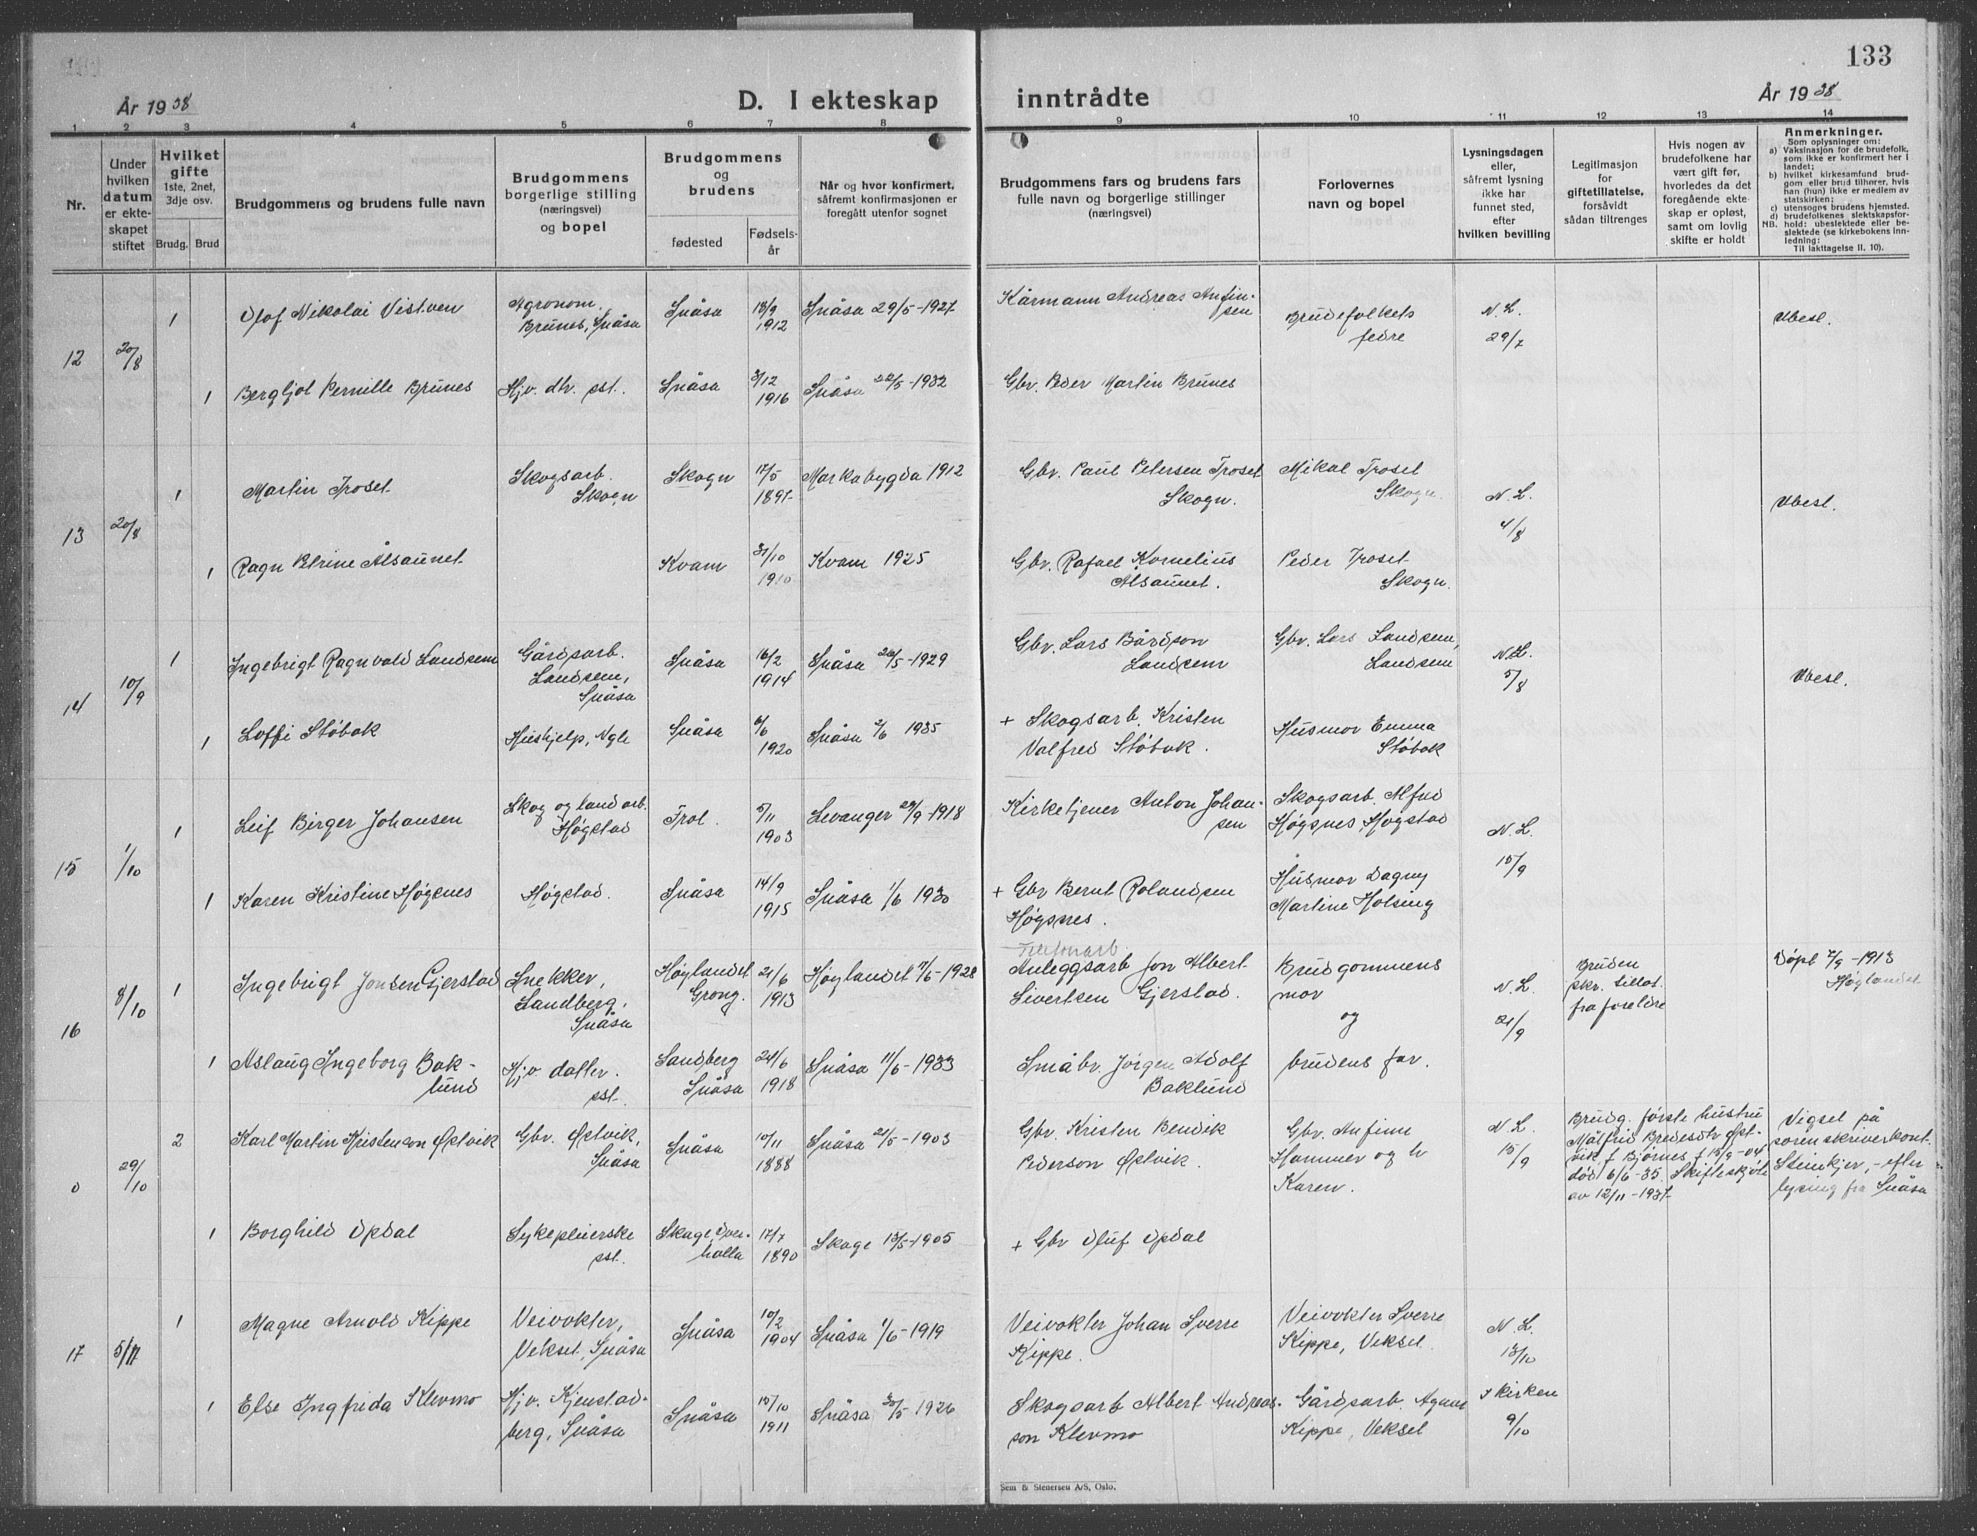 133
År 1938
D. I ekteskap inntrådte
År 1938
1 2 3 4 5 6 7 8 9 10 11 12 13 14
Nr.
Under
hvilken
datum
er ekte-
skapet
stiftet
Hvilket
gifte
1ste, 2net,
3dje osv.
Brudg. Brud
Brudgommens og brudens fulle navn
Brudgommens
borgerlige stilling
(næringsvei)
og bopel
Brudgommens
og
brudens
fødested
Fødsels-
år
Når og hvor konfirmert,
såfremt konfirmasjonen er
foregått utenfor sognet
Brudgommens fars og brudens fars
fulle navn og borgerlige stillinger
(næringsvei)
Forlovernes
navn og bopel
Lysningsdagen
eller,
såfremt lysning
ikke har
funnet sted,
efter
hvilken bevilling
Legitimasjon
for
giftetillatelse,
forsåvidt
sådan tiltrenges
Hvis nogen av
brudefolkene har
vært gift før,
hvorledes da det
foregående ekte-
skap er opløst,
samt om lovlig
skifte er holdt
Anmerkninger.
Som oplysninger om:
a) Vaksinasjon for de brudefolk,
som ikke er konfirmert her i
landet;
b) hvilket kirkesamfund brud-
gom eller brud tilhører, hvis
han (hun) ikke er medlem av
statskirken;
c) utensogns brudens hjemsted.
d) brudefolkenes slektskapsfor-
NB. hold: ubeslektede eller be-
slektede (se kirkebokens inn-
ledning:
Til iakttagelse II. 10).
12
20/8
1
Olof Nikolai Vistven
Agronom.
Brunes, Snåsa
Snåsa
18/9
1912
Snåsa 29/5-1927
Kårmann Andreas Anfin-
sen
Brudefolkets
fedre
N. L.
29/7
Ubesl.
1
Bergljot Pernille Brunes
Hjv. dtr. sst.
Snåsa
3/12
1916
Snåsa 22/5-1932
Gbr. Peder Martin Brunes
13
20/8
1
Martin Troset
Skogsarb.
Skogn
Skogn
17/5
1897
Markabygda 1912
Gbr. Paul Petersen Troset
Skogn.
Mikal Troset
Skogn.
N. L.
4/8
Ubesl.
1
Ragn Petrine Ålsaunet
Kvam
31/10
1910
Kvam 1925
Gbr. Rafael Kornelius
Alsaunet.
Peder Troset
Skogn.
14
10/9
1
Ingebrigt Ragnvald Landsem
Gårdsarb.
Landsem,
Snåsa
Snåsa
16/2
1914
Snåsa 26/5-1929
Gbr. Lars Bårdson
Landsem
Gbr. Lars Landsem,
Landsem
N.L.
5/8
Ubesl.
1
Loffi Støbak
Hushjelp, Ngle
Snåsa
6/6
1920
Snåsa 2/6 1935
+ Skogsarb. Kristen
Valfred Støbak.
Husmor Emma
Støbak
15
1/10
1
Leif Birger Johansen
Skog og landarb.
Høgstad
Frol.
5/11
1903
Levanger 29/9-1918
Kirketjener Anton Johan-
sen
Skogsarb. Alfred
Høgsnes, Høgstad
N. L.
15/9
1
Karen Kristine Høgsnes
Høgstad.
Snåsa
14/9
1915
Snåsa 1/6 1930
+ Gbr Bernt Rolandsen
Høgsnes.
Husmor Dagny
Martine Holsing
16
8/10
1
Ingebrigt Jonsen Gjerstad
Snekker,
Sandberg,
Snåsa
Høylandet
Grong.
21/6
1913
Høylandet 17/5-1928
Telefonarb.
Anleggsarb Jon Albert
Sivertsen Gjerstad.
Brudgommens
mor
og
N. L.
21/9
Bruden
skr. tillat.
fra foreldre
Døpt 7/9-1913
Høylandet
1
Aslaug Ingeborg Bak-
lund
Hjv. datter.
sst.
Sandberg
Snåsa
24/6
1918
Snåsa 11/6-1933
Småbr. Jørgen Adolf
Baklund
brudens far.
0
29/10
2
Karl Martin Kristenson Østvik
Gbr. Østvik,
Snåsa
Snåsa
10/11
1888
Snåsa 21/5-1903
Gbr. Kristen Bendik
Pederson Østvik.
Gbr. Anfinn
Hammer og h
Karen.
N. L.
15/9
Brudg. første hustru
Målfrid Bredesdtr Øst-
vik f. Bjørnes f 15/9-04
død 6/6-35. Skifteskjøte
av 12/11-1937
Vigsel på
sorenskriverkont.
Steinkjer, - efter
lysing fra Snåsa
1
Borghild Opdal
Sykepleierske
sst.
Skage, Over-
halla
17/7
1890
Skage 15/5-1905
+ Gbr Oluf Opdal
17
5/11
1
Magne Arnold Kippe
Veivokter,
Veksel, Snåsa
Snåsa
10/2
1904
Snåsa 1/6-1919
Veivokter Johan Sverre
Kippe.
Veivokter Sverre
Kippe, Veksel.
N. L.
13/10
1
Else Ingfrida Klevmo
Hjv. Kjenstad-
berg, Snåsa
Snåsa
15/10
1911
Snåsa 30/5-1926
Skogsarb Albert Andreas-
son Klevmo
Gårdsarb. Agnar
Kippe, Veksel
I kirken
9/10
Sem & Stenersen A/S, Oslo.